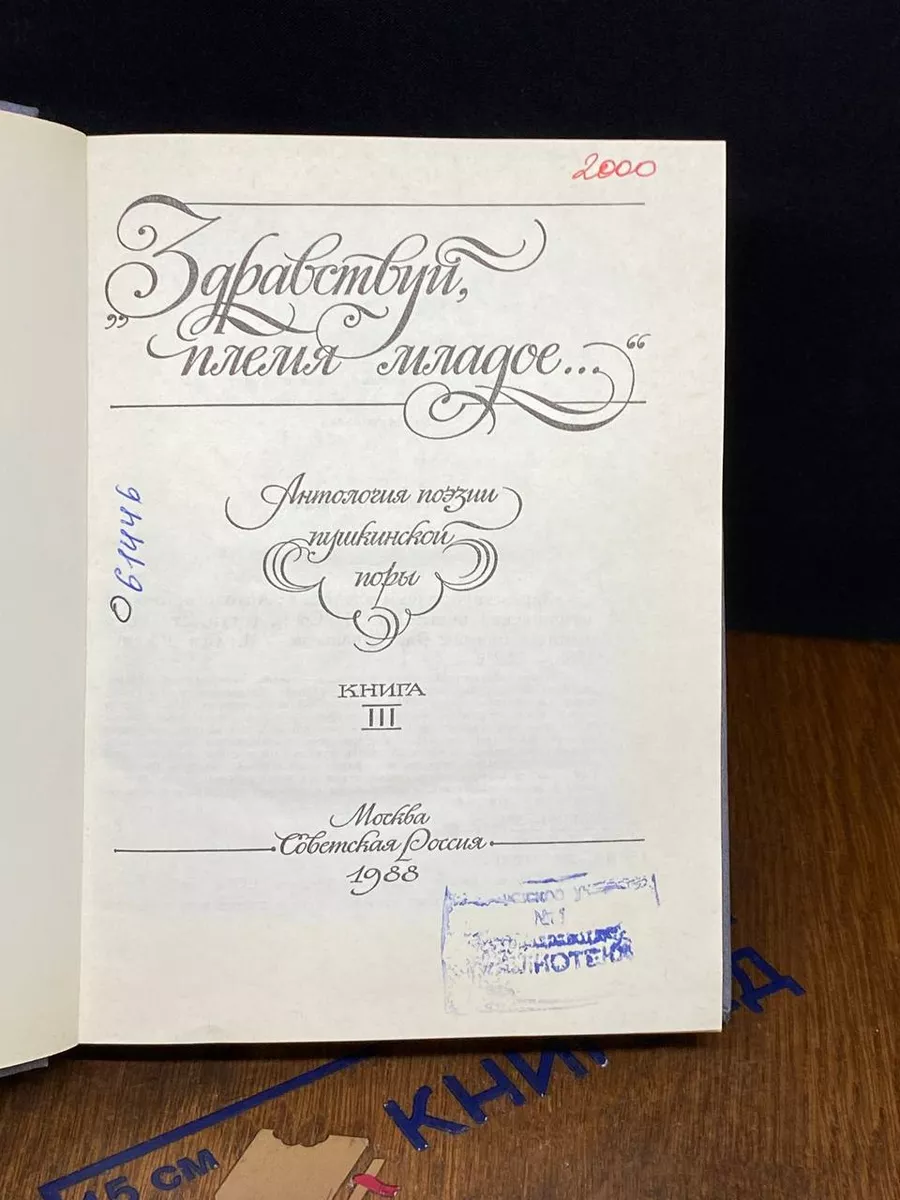 2000
„Здравствуй,
племя младое...“
Антология поэзии
пушкинской
поры
КНИГА
III
Москва
Советская Россия
1988
061446
№1
15 см